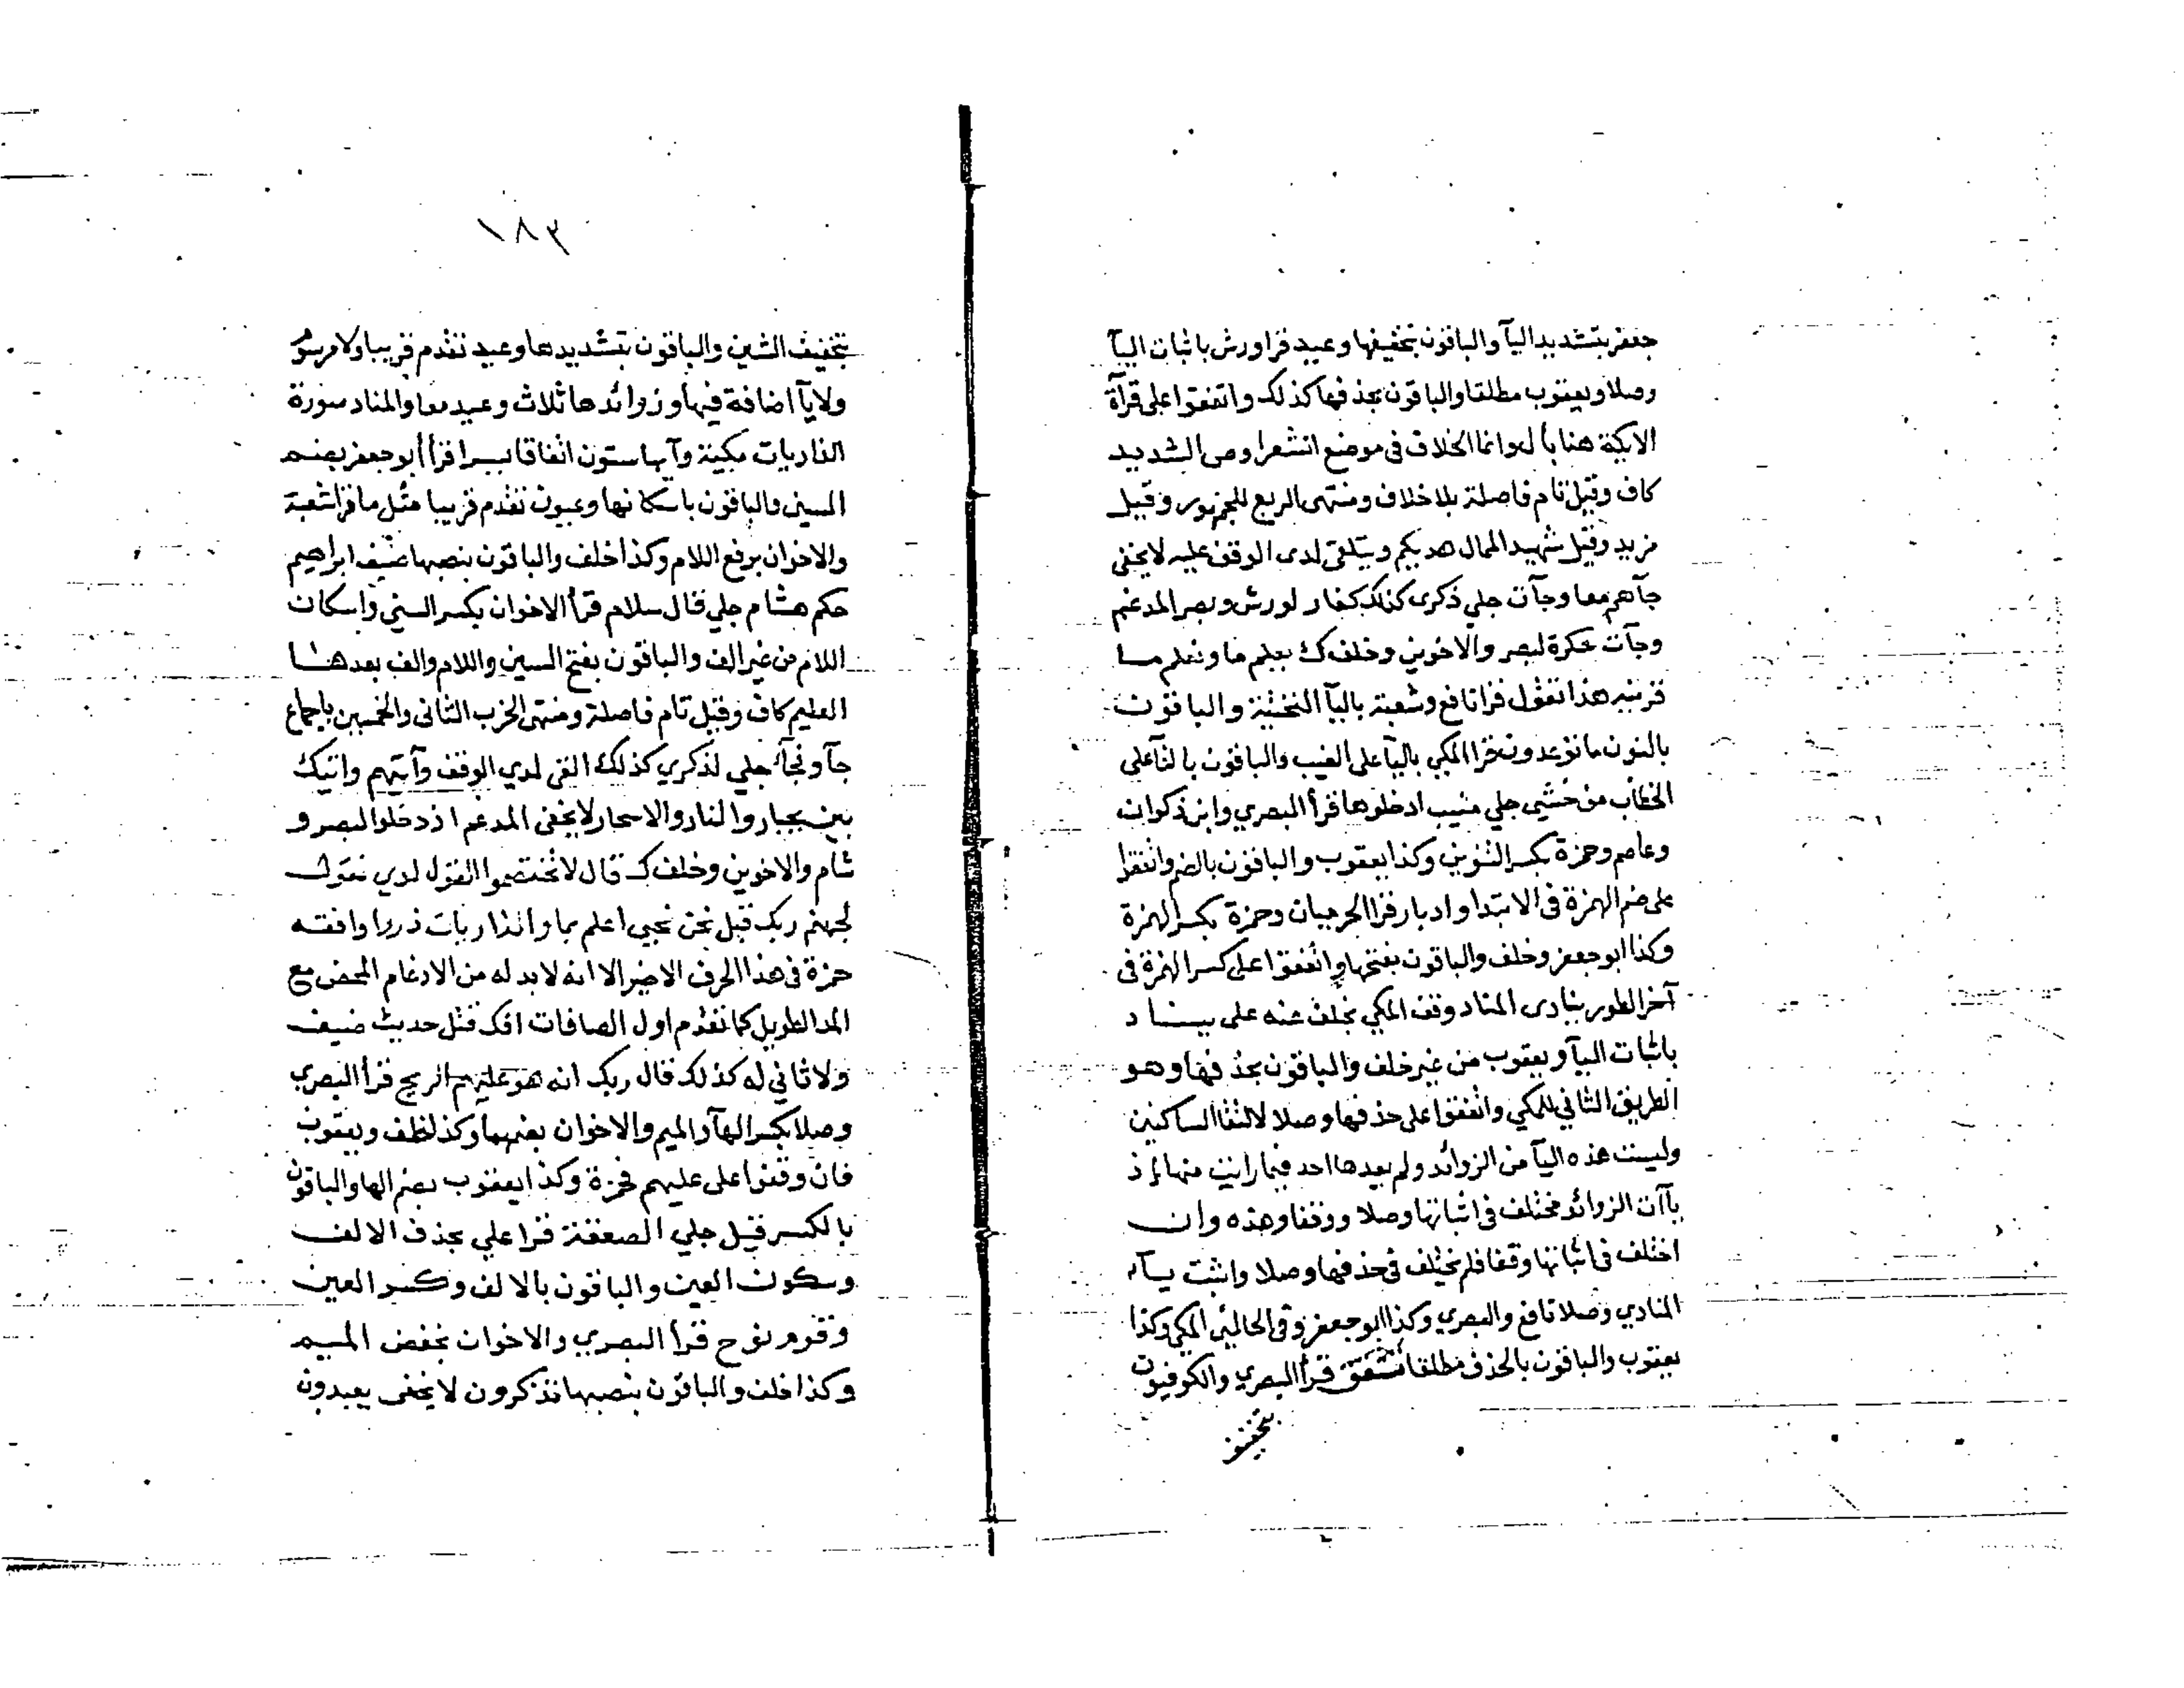 جعفر بتشديد اليآ والباقون بتخفيفها وعيد قرا ورش باثبات اليآ
وصلا ويعقوب مطلقا والباقون بحذفها كذلك واتفقوا على قرآة
الايكة هنا بأل وانما الخلاف في موضع الشعرا وص الشديد
كاف وقيل تام فاصلة بلا خلاف ومنتهى الربع للجمهور وقيل
مزيد وقيل شهيد الممال هديكم ويتلقى لدى الوقف عليه لا يخفى
جآهم معا وجآت جلي ذكرى كذلك كفار لورش وبصر المدغم
وجآت سكرة لبصر والاخوين وخلف ك نعلم ما ونعلم ما
قرينه هذا نقول قرا نافع وشعبة باليآ التحتية والباقون
بالنون ما توعدون قرا المكي باليآ على الغيب والباقون بالتآ على
الخطاب من خشي جلي منيب ادخلوها قرأ البصري وابن ذكوان
وعاصم وحمزة بكسر التنوين وكذا يعقوب والباقون بالضم واتفقوا
على ضم الهمزة في الابتدا وادبار قرا الحرميان وحمزة بكسر الهمزة
وكذا ابو جعفر وخلف والباقون بفتحها واتفقوا على كسر الهمزة في
آخر الطور ينادى المناد وقف المكي بخلف عنه على يناد
باثبات اليآ ويعقوب من غير خلف والباقون بحذفها وهو
الطريق الثاني للمكي واتفقوا على حذفها وصلا لالتقا الساكنين
وليست هذه اليآ من الزوائد ولم يعدها احد فيما رايت منها اذ
يآآت الزوائد مختلف في اثباتها وصلا ووقفا وهذه وان
اختلف في اثباتها وقفا فلم يختلف في حذفها وصلا واثبت يآء
المنادي وصلا نافع والبصري وكذا ابو جعفر وفي الحالين المكي وكذا
يعقوب والباقون بالحذف مطلقا تشقق قرأ البصري والكوفيون
بتخفيف
١٨٣
بتخفيف الشين والباقون بتشديدها وعيد تقدم قريبا ولا مرسوم
ولا يآ اضافة فيها وزوائدها ثلاث وعيد معا والمناد سورة
الذاريات مكية وآيها ستون اتفاقا يسرا قرأ ابو جعفر بضم
السين والباقون باسكانها وعيون تقدم قريبا مثل ما قرا شعبة
والاخوان برفع اللام وكذا خلف والباقون بنصبها ضيف ابراهيم
حكم هشام جلي قال سلام قرأ الاخوان بكسر السين واسكان
اللام من غير الف والباقون بفتح السين واللام والف بعدها
العليم كاف وقيل تام فاصلة ومنتهى الحزب الثاني والخمسين باجماع
جآ وفجآء جلي لذكري كذلك القى لدي الوقف وآتيهم واتيك
بين بجبار والنار والاسحار لا يخفى المدغم اذ دخلوا لبصر و
شام والاخوين وخلف ك قال لا تختصموا القول لدي نقول
لجهنم ربك قبل نحن نحيي اعلم بما والذاريات ذروا وافقه
حمزة في هذا الحرف الاخير الا انه لا بد له من الادغام المحض مع
المد الطويل كما تقدم اول الصافات افك قتل حديث ضيف
ولا ثاني له كذلك قال ربك انه هو عليهم الريح قرأ البصري
وصلا بكسر الهآ والميم والاخوان بضمهما وكذا خلف ويعقوب
فان وقفوا على عليهم فحمزة وكذا يعقوب بضم الها والباقون
بالكسر قيل جلي الصعقة قرا علي بحذف الالف
وسكون العين والباقون بالالف وكسر العين
وقوم نوح قرأ البصري والاخوان بخفض الميم
وكذا خلف والباقون بنصبها تذكرون لا يخفى يعبدون